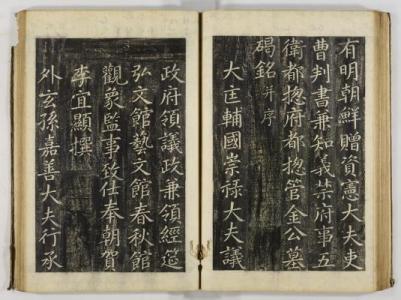 有明朝鮮贈資憲大夫吏
曹判書兼知義禁府事五
衛都摠府都摠管金公墓
碣銘并序
大匡輔國崇祿大夫議
政府領議政兼領經筵
弘文館藝文館春秋館
觀象監事致仕奉朝賀
李宜顯撰
外玄孫嘉善大夫行承